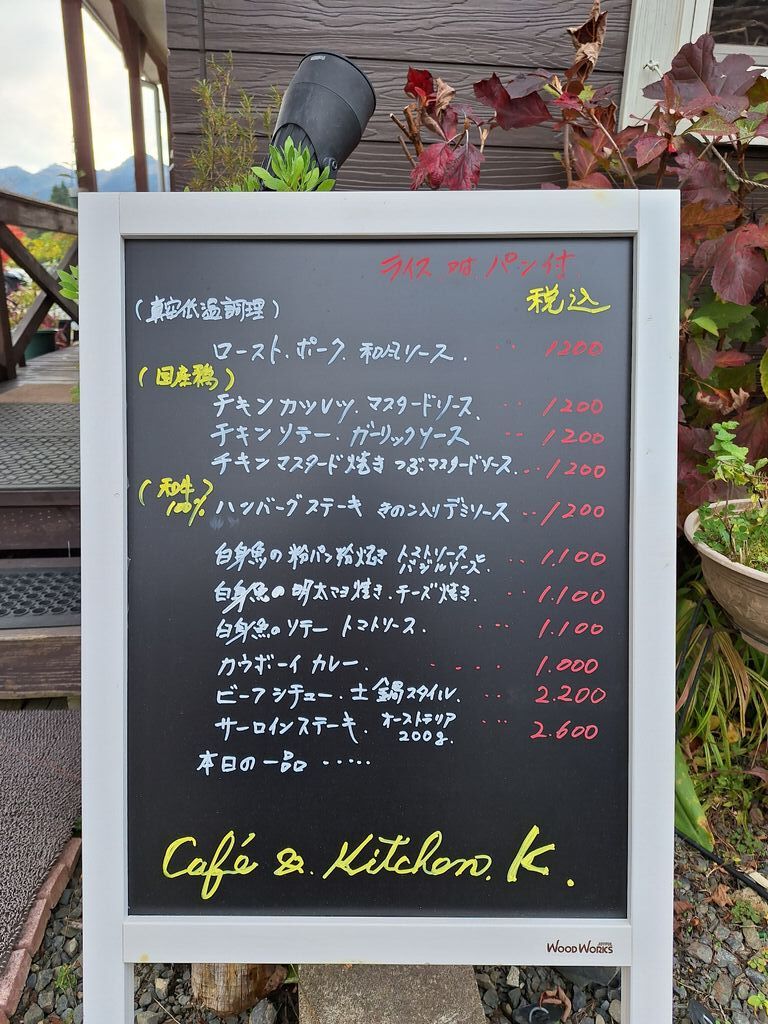 ライス or パン付
税込
(真空低温調理)
ロースト.ポーク.和風ソース. ‥ 1200
(国産鶏)
チキンカツレツ.マスタードソース. ‥ 1200
チキンソテー.ガーリックソース ‥ 1200
チキンマスタード焼き つぶマスタードソース... 1200
(和牛100%)
ハンバーグステーキ きのこ入りデミソース ‥ 1200
白身魚の粉パン粉焼き トマトソースとバジルソース. ‥ 1.100
白身魚の明太マヨ焼き.チーズ焼き. ‥ 1.100
白身魚のソテー トマトソース. ... 1.100
カウボーイカレー. .... 1.000
ビーフシチュー.土鍋スタイル. ‥ 2.200
サーロインステーキ. オーストラリア 200g. ... 2.600
本日の一品 ‥‥‥
Café & Kitchen. K.
WOODWORKS